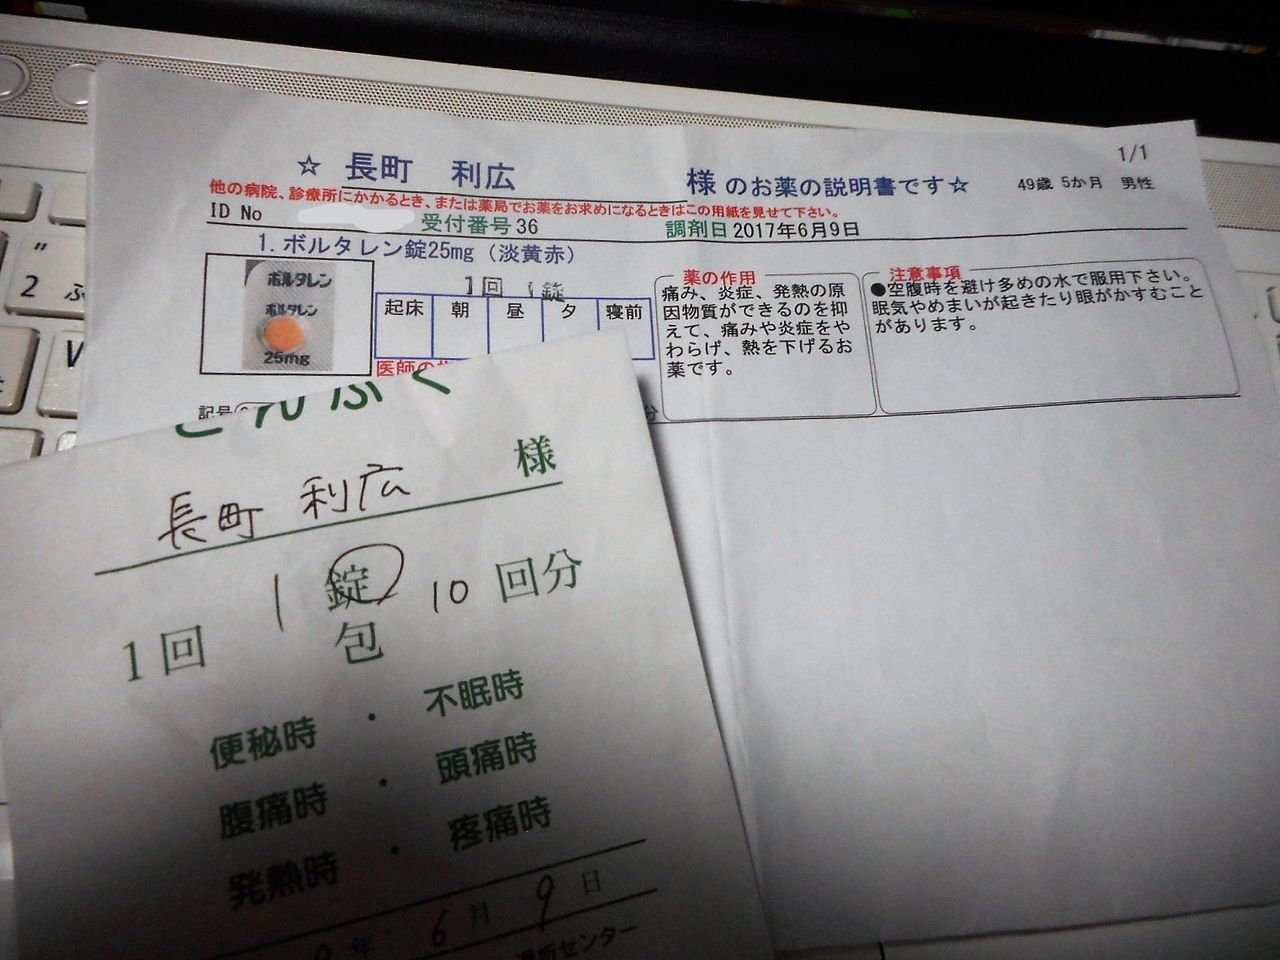 1/1
☆ 長町 利広 様 のお薬の説明書です☆ 49歳 5か月 男性
他の病院、診療所にかかるとき、または薬局でお薬をお求めになるときはこの用紙を見せて下さい。
ID No 受付番号36 調剤日 2017年6月9日
1. ボルタレン錠25mg (淡黄赤)
ボルタレン
ボルタレン
25mg
1回 1錠
起床 朝 昼 夕 寝前
医師の
記号
分
薬の作用
痛み、炎症、発熱の原
因物質ができるのを抑
えて、痛みや炎症をや
わらげ、熱を下げるお
薬です。
注意事項
●空腹時を避け多めの水で服用下さい。
眠気やめまいが起きたり眼がかすむこと
があります。
とんぷく
長町 利広 様
1回 1 錠 10 回分
包
便秘時 ・ 不眠時
腹痛時 ・ 頭痛時
発熱時 ・ 疼痛時
年 6 月 9 日
センター
2 ふ
W